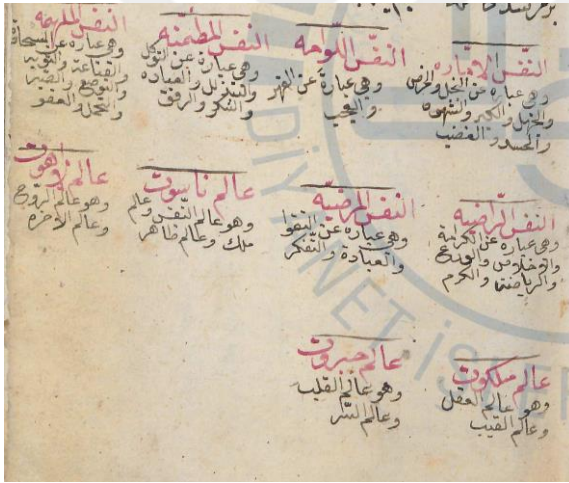 النفس الاماره
وهي عباره عن البخل والحرص
والجهل والكبر والشهوه
والحسد والغضب
النفس اللوامه
وهي عبارة عن القهر
والعجب
النفس المطمئنه
وهي عبارة عن التوكل
والتذلل والعباده
والشكر والرفق
النفس الملهمه
وهي عباره عن السخاة
القناعة والتوبه
والتوضع والصبر
والتحمل والعفو
النفس الراضيه
وهي عباره عن الكرامة
والاخلاص والورع
والرياضة والكرم
النفس المرضيه
وهي عباره عن التقوا
والعبادة والتفكر
عالم ناسوت
وهو عالم النفس وعالم
ملك وعالم ظاهر
عالم لاهوت
وهو عالم الروح
وعالم الاخره
عالم ملكوت
وهو عالم العقل
وعالم الغيب
عالم جبروت
وهو عالم القلب
وعالم السر
DİYANET İS